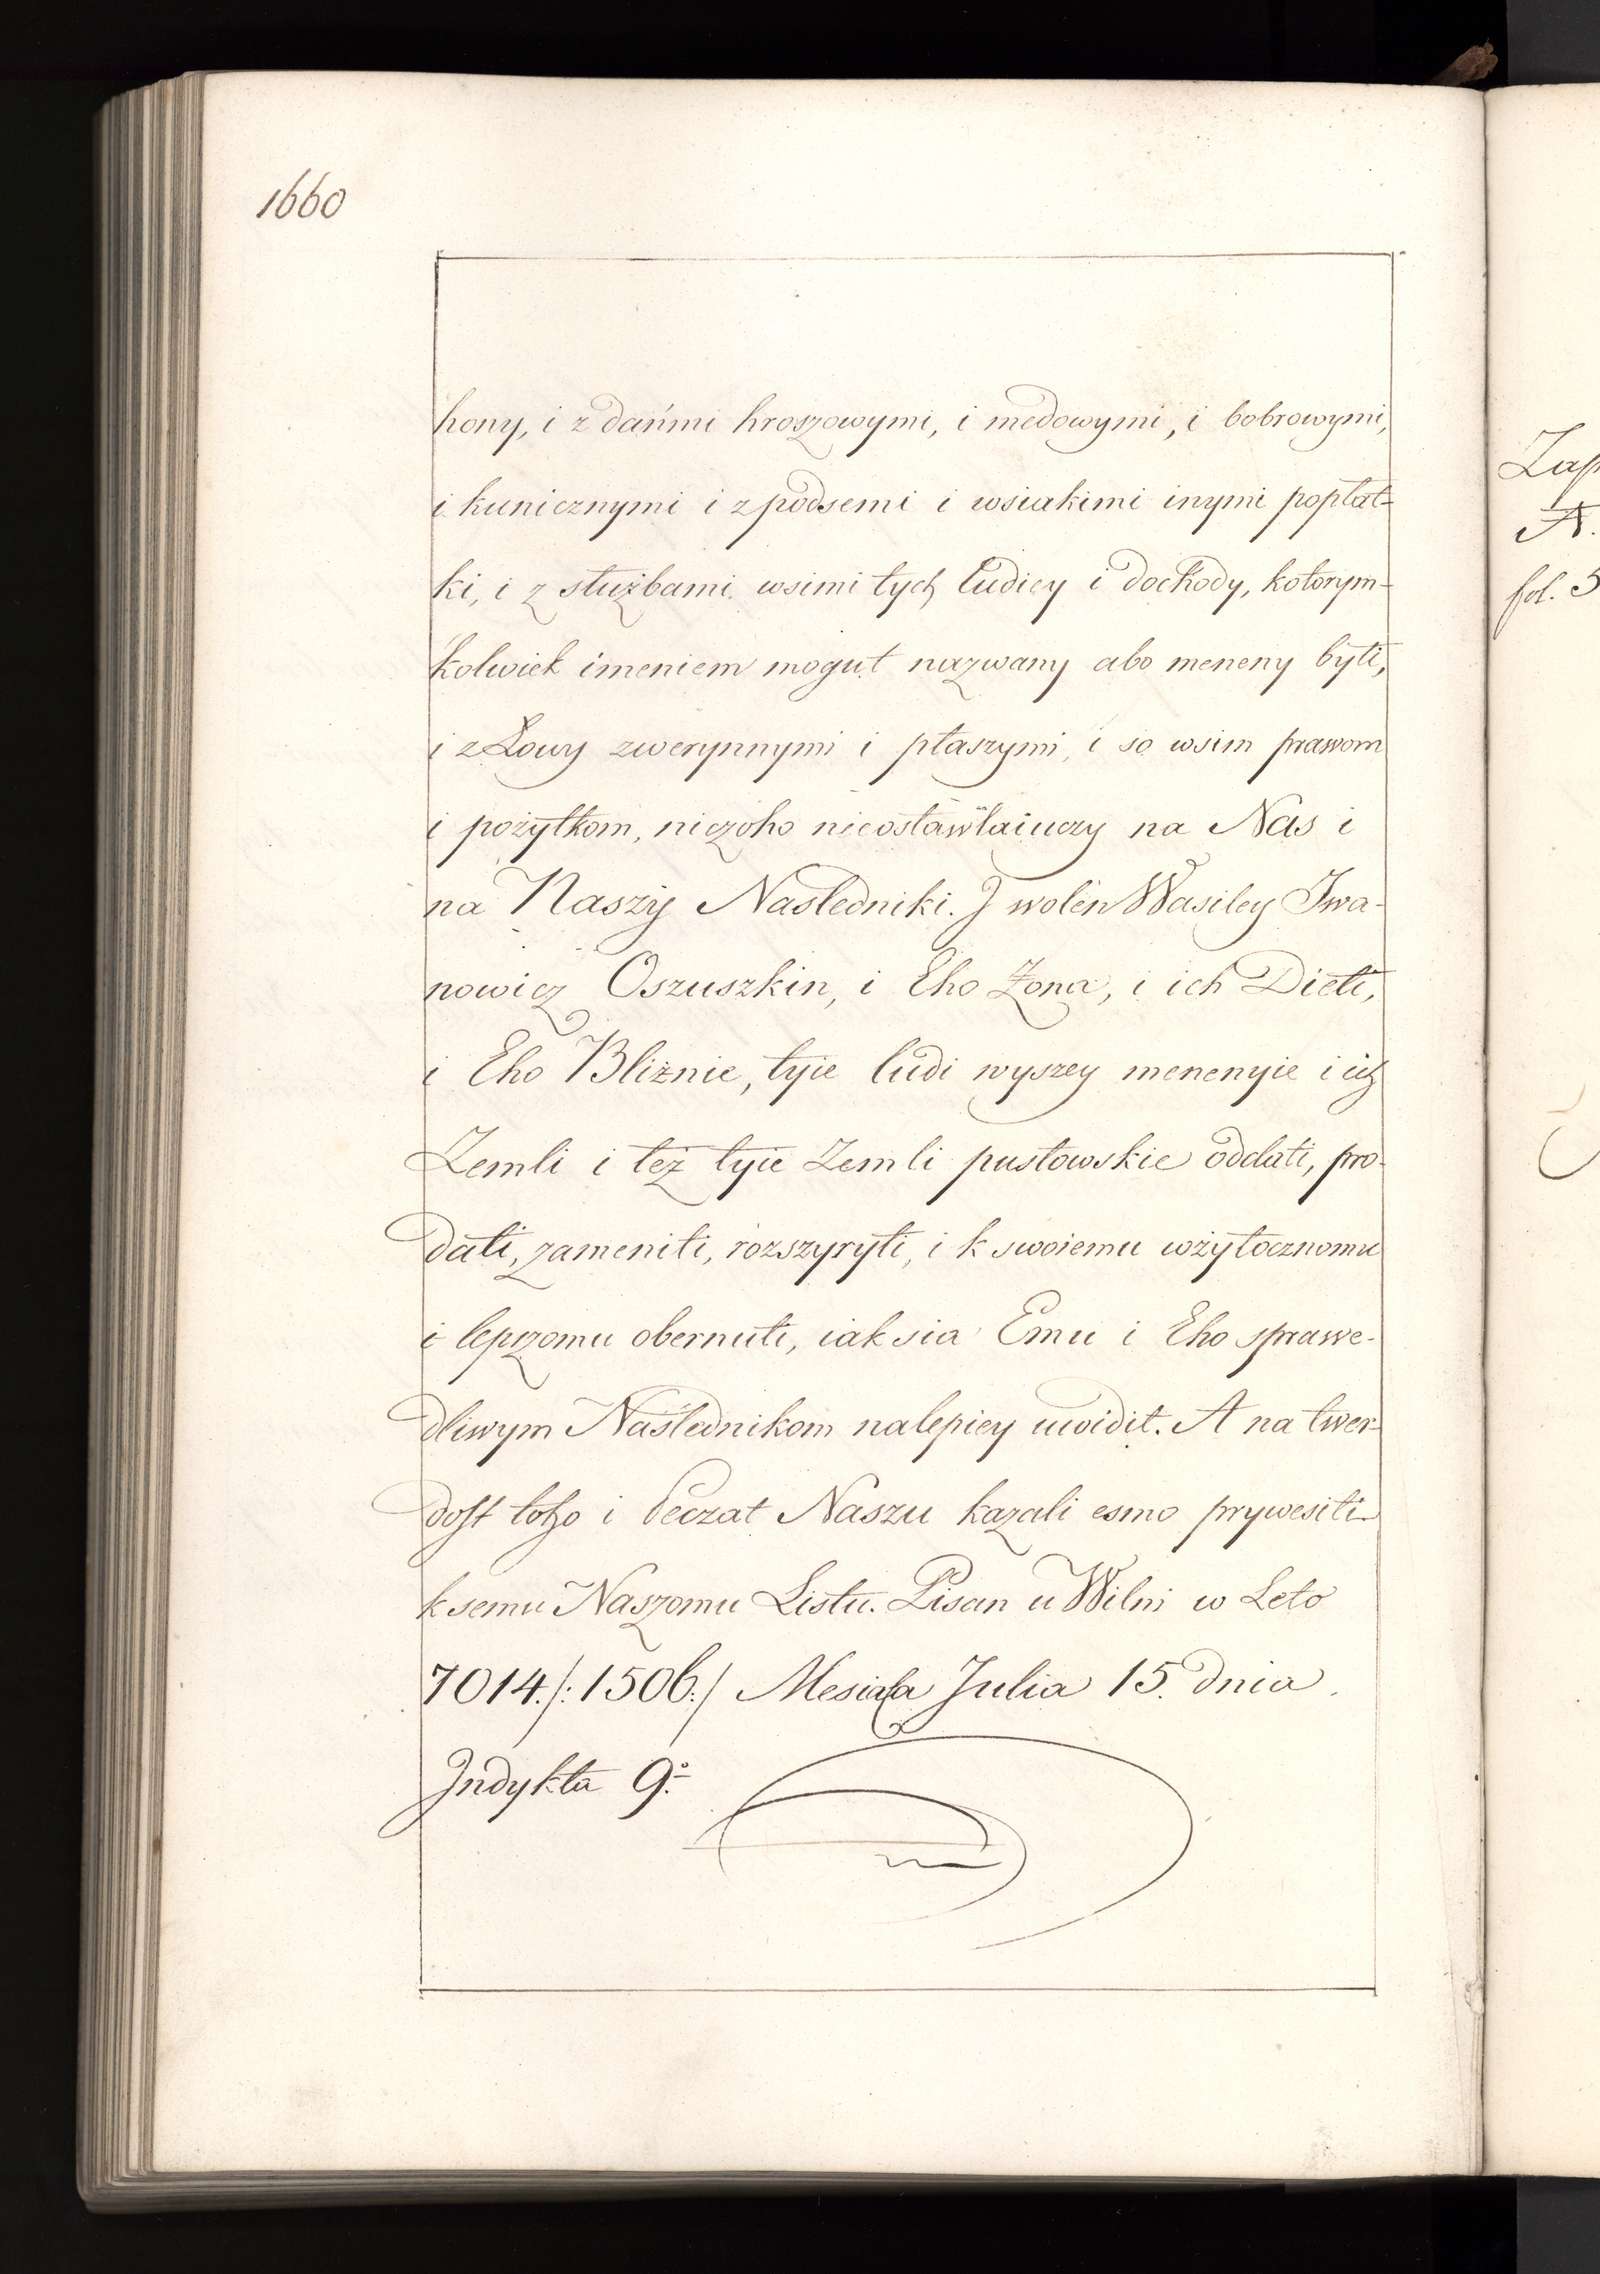 1660
hony, i z dańmi hroszowymi, i medowymi, i bobrowymi,
i kunicznymi i z podsemi i wsiakimi inymi popłat-
ki, i z służbami wsimi tych ludiey i dochody, kotorym-
kolwiek imeniem mogut nazwany abo meneny byti,
i z Łowy zwerynnymi i ptaszymi, i so wsim prawom
i pożytkom, niczoho nieostawlaiuczy na Nas i
na Naszy Nasledniki. J wolen Wasiley Iwa-
nowicz Oszuszkin, i Eho Żona, i ich Dieti,
i Eho Bliżnie, tyie ludi wyszey menenyie i ich
Zemli i też tyie Zemli pustowskie oddati, pro-
dati, zameniti, rozszyryti, i k swoiemu wżytocznomu
i lepszomu obernuti, iak sia Emu i Eho sprawe-
dliwym Naślednikom nalepiey uwidit. A na twer-
dost toho i Peczat Naszu kazali esmo prywesiti
k semu Naszomu Listu. Pisan u Wilni w Leto
7014./:1506:/ Mesiaca Julia 15. dnia
Jndykta 9.º
Zap
A.
fol. 5